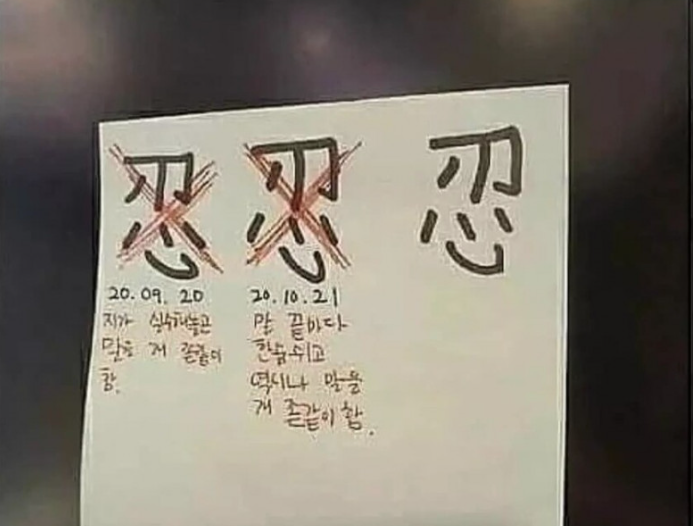 忍 忍 忍
20.09.20
지가 실수해놓곤
말을 개 좆같이
함.
20.10.21
말 끝마다
한숨쉬고
역시나 말을
개 좆같이 함.